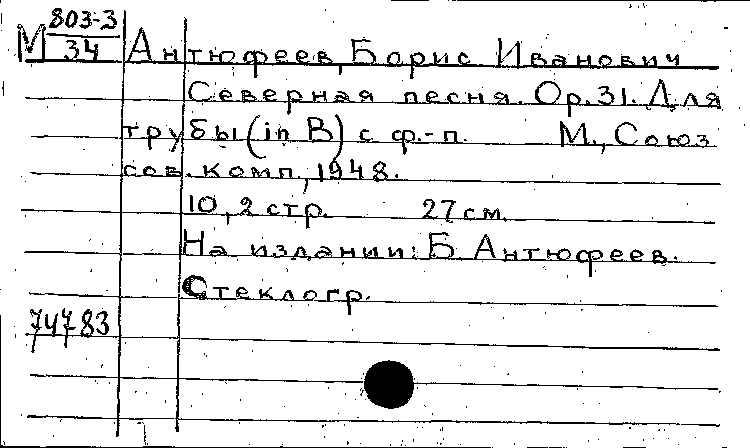 М 803-3/34 Антюфеев, Борис Иванович
Северная песня. Op. 31. Для
трубы (in B) с ф.-п. М., Союз
сов. комп., 1948.
10, 2 стр. 27 см.
На издании: Б. Антюфеев.
Стеклогр.
74783